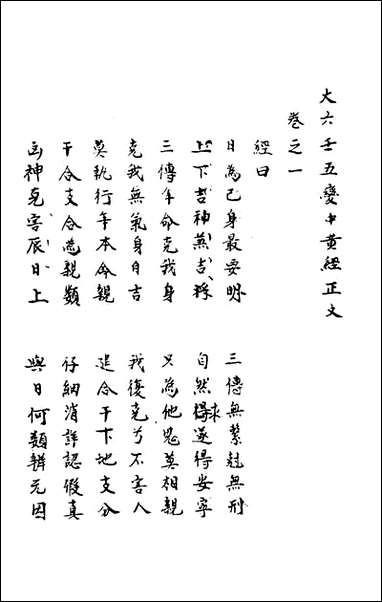 大六壬五變中黃經正文
卷之一
經曰
日為己身最要明 三傳無繫尅無刑
上下吉神兼吉將 自然求遂得安寧
三傳年命克我身 只為他鬼莫相親
克我無氣身自吉 我復克兮不害人
莫執行年本命親 進合干下地支分
干合支合為親類 仔細消詳認假真
凶神克害辰日上 與日何類辯元因